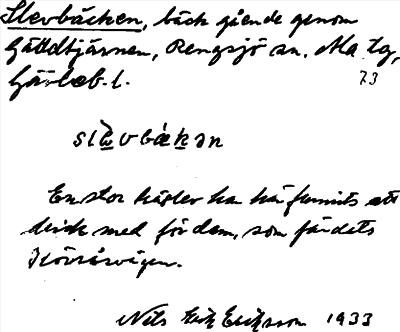 Slevbäcken, bäck gående genom
Gäddtjärnen, Rengsjö sn. Ma tg,
Gävleb. l. 73
En stor käslev har här funnits att
dricka med för dem, som färdets
Nils Erik Eriksson 1933